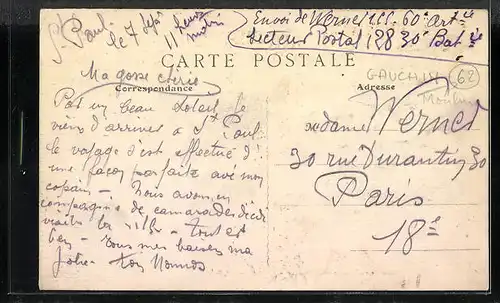 St Paul
le 7 sept
11 heures
matin
Envoi de Wernet 60e Artie
Secteur Postal 188 30e Batie
CARTE POSTALE
GAUCHIN (62)
Moulin
Ma gosse chérie
Correspondance
Adresse
Par un beau soleil je
viens d'arriver à St Paul
le voyage s'est effectué d'
une façon parfaite avec mon
copain - Nous avons en
compagnie de camarades d'ici
visité la ville - tout est
bien - tous mes baisers ma
jolie - ton Nounos
Madame Wernet
30 rue Durantin 30
Paris
18e